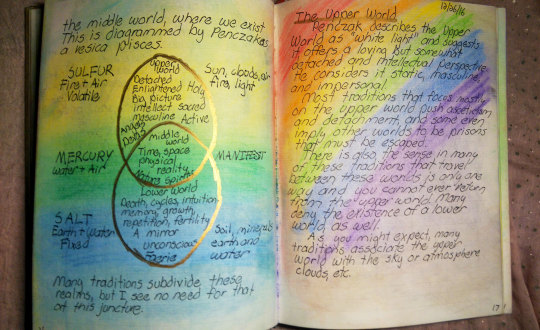 the middle world, where we exist
This is diagrammed by Penczak as
a vesica pisces.
SULFUR
Fire + Air
Volatile
Upper
World
Detached
Enlightened Holy
Big picture
Intellect Sacred
masculine Active
Angels
Devas
Sun, clouds, air
fire, light
MERCURY
Water + Air
middle
world
Time, space
physical
reality
Nature Spirits
MANIFEST
SALT
Earth + Water
Fixed
Lower World
Death, cycles, intuition
memory, growth,
repetition, fertility
A mirror
unconscious
Faerie
Soil, minerals
earth and
water
Many traditions subdivide these
realms, but I see no need for that
at this juncture.
The Upper World
12/26/16
Penczak describes the Upper
World as "white light" and suggests
it offers a loving but somewhat
detached and intellectual perspective.
He considers it static, masculine
and impersonal.
Most traditions that focus mostly
on the upper world push asceticism
and detachment, and some even
imply other worlds to be prisons
that must be escaped.
There is also the sense in many
of these traditions that travel
between these worlds is only one
way and you cannot ever return
from the upper world. Many
deny the existence of a lower
world as well.
As you might expect, many
traditions associate the upper
world with the sky or atmosphere,
clouds, etc.
17